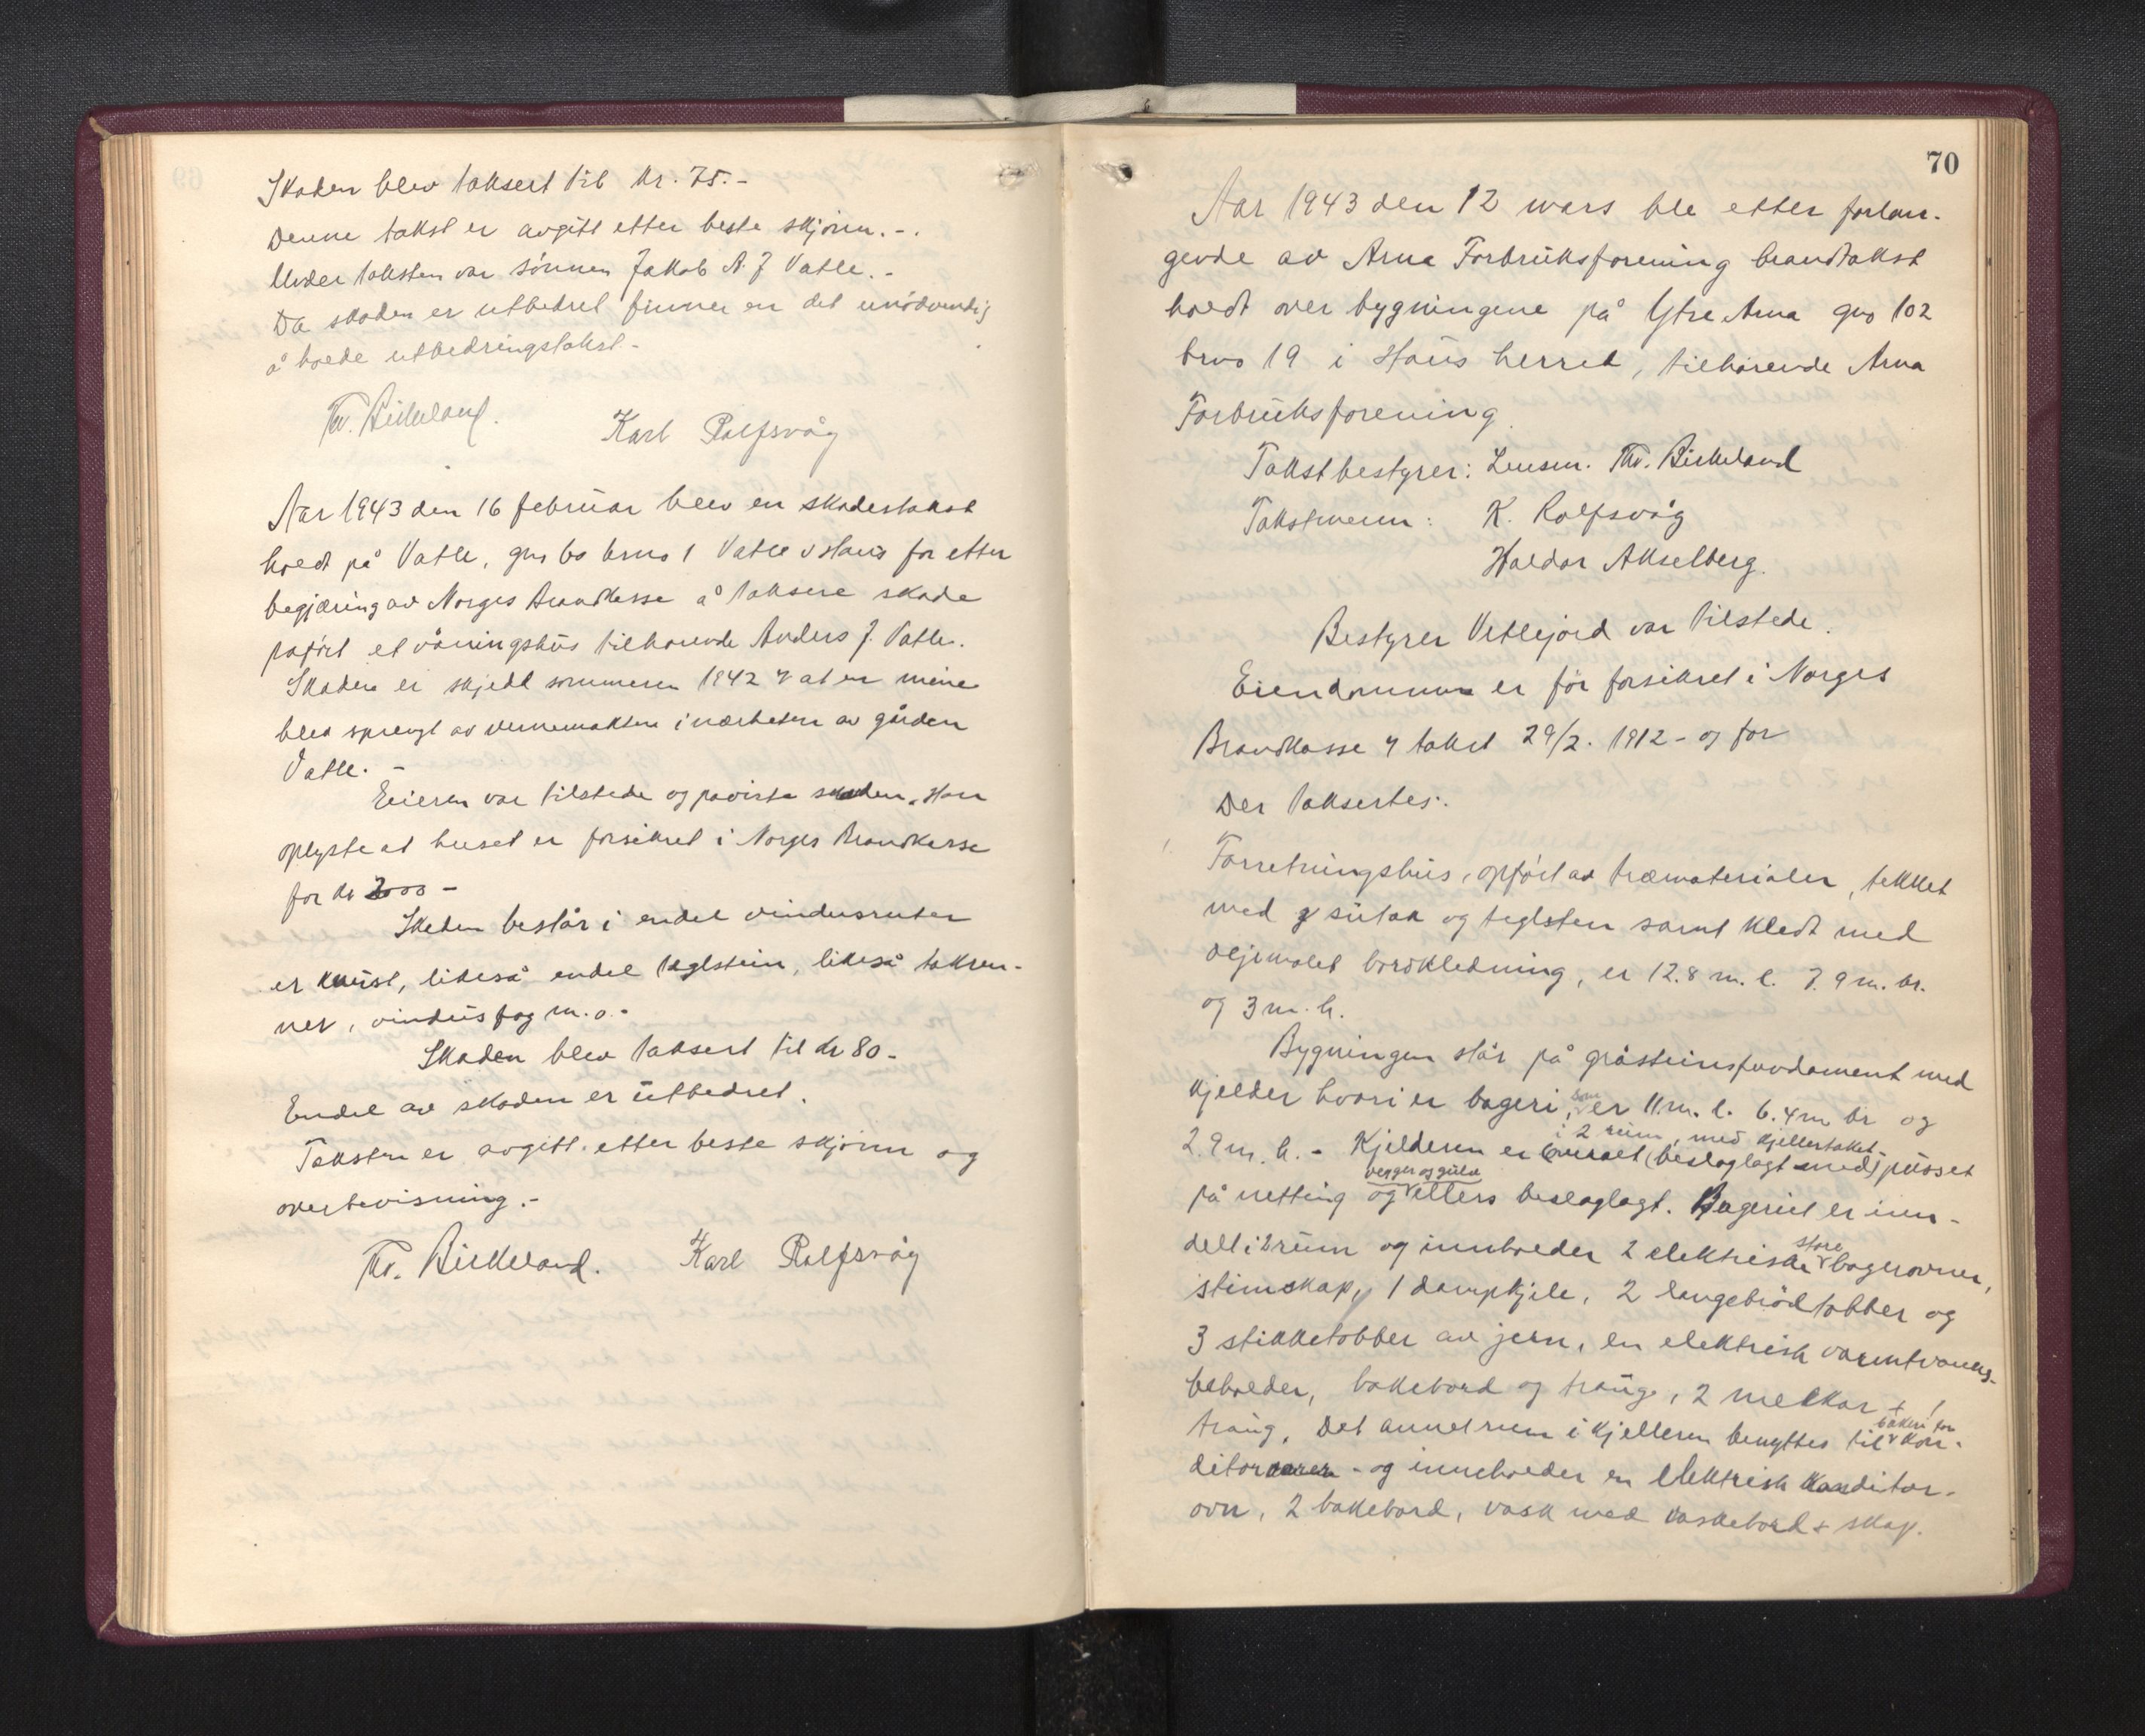 Skaden blev taksert til kr. 75.-
Denne takst er avgitt etter beste skjønn.-.
Under taksten var sønnen Jakob A. J Vatle.-
Da skaden er utbedret finner en det unödvendig
å holde utbedringstakst.-
Th. Birkeland.
Karl Rolfsvåg
Aar 1943 den 16 februar blev en skadestakst
holdt på Vatle, gno 60 bruno 1 Vatle i Haus for etter
begjæring av Norges Brandkasse å taksere skade
påført et våningshus tilhørende Anders J. Vatle.
Skaden er skjedd sommeren 1942 v at en mine
blev sprengt av vernemakten i nærheten av gården
Vatle. -
Eieren var tilstede og påviste skaden. Han
oplyste at huset er forsikret i Norges Brandkasse
for kr 2000 -
Skaden består i endel vindusruter
er knust, likeså endel taglstein, likeså takren-
ner, vindusfag m.o.-
Skaden blev taksert til kr 80-
Endel av skaden er utbedret.
Taksten er avgitt etter beste skjønn og
overbevisning.-
Th. Birkeland. Karl Rolfsvåg
70
Aar 1943 den 12 mars ble etter forlan-
gende av Arna Forbruksforening brandtakst
holdt over bygningene på Ytre Arna gno 102
bruno 19 i Haus herred, tilhørende Arna
Forbruksforening
Takstbestyrer: Lensm. Th. Birkeland
Takstmenn: K. Rolfsvåg
Haldor Akselberg.
Bestyrer Vetlejord var tilstede.
Eiendommen er för forsikret i Norges
Brandkasse v takst 29/2. 1912 - og for
Der taksertes:.
Forretningshus, opfört av træmaterialer, tekket
med sutak og teglsten samt kledt med
oljemalet bordkledning, er 12.8 m. l. 7.9 m. br.
og 3 m. h.
Bygningen står på gråsteinsfundament med
kjelder hvori er bageri, som er 11 m. l. 6.4 m br og
2.9 m. h. - Kjelderen er i 2 rum, med kjellertaket
overalt (beslaglagt med) pusset
på netting og vegger og gulv ellers beslaglagt. Bageriet er inn-
delt i 2 rum og innholder 2 elektriske store bagerovner,
stimskap, 1 dampkjele, 2 langebrödtobber og
3 stikketobber av jern, en elektrisk varmtvanns-
beholder, bakebord og traug, 2 melkar + 1
traug. Det annet rum i kjelleren benyttes til bakeri for kon-
ditorvarer - og inneholder en elektrisk konditor-
ovn, 2 bakebord, vask med vaskebord + skap.